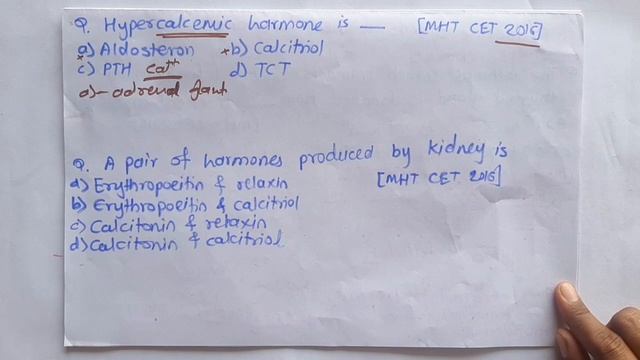 Q. Hypercalcemic harmone is — [MHT CET 2016]
a) Aldosteron b) Calcitriol
c) PTH Ca++ d) TCT
a) - adrenal
Q. A pair of hormones produced by kidney is
a) Erythropoeitin & relaxin [MHT CET 2016]
b) Erythropoeitin & calcitriol
c) Calcitonin & relaxin
d) Calcitonin & calcitriol